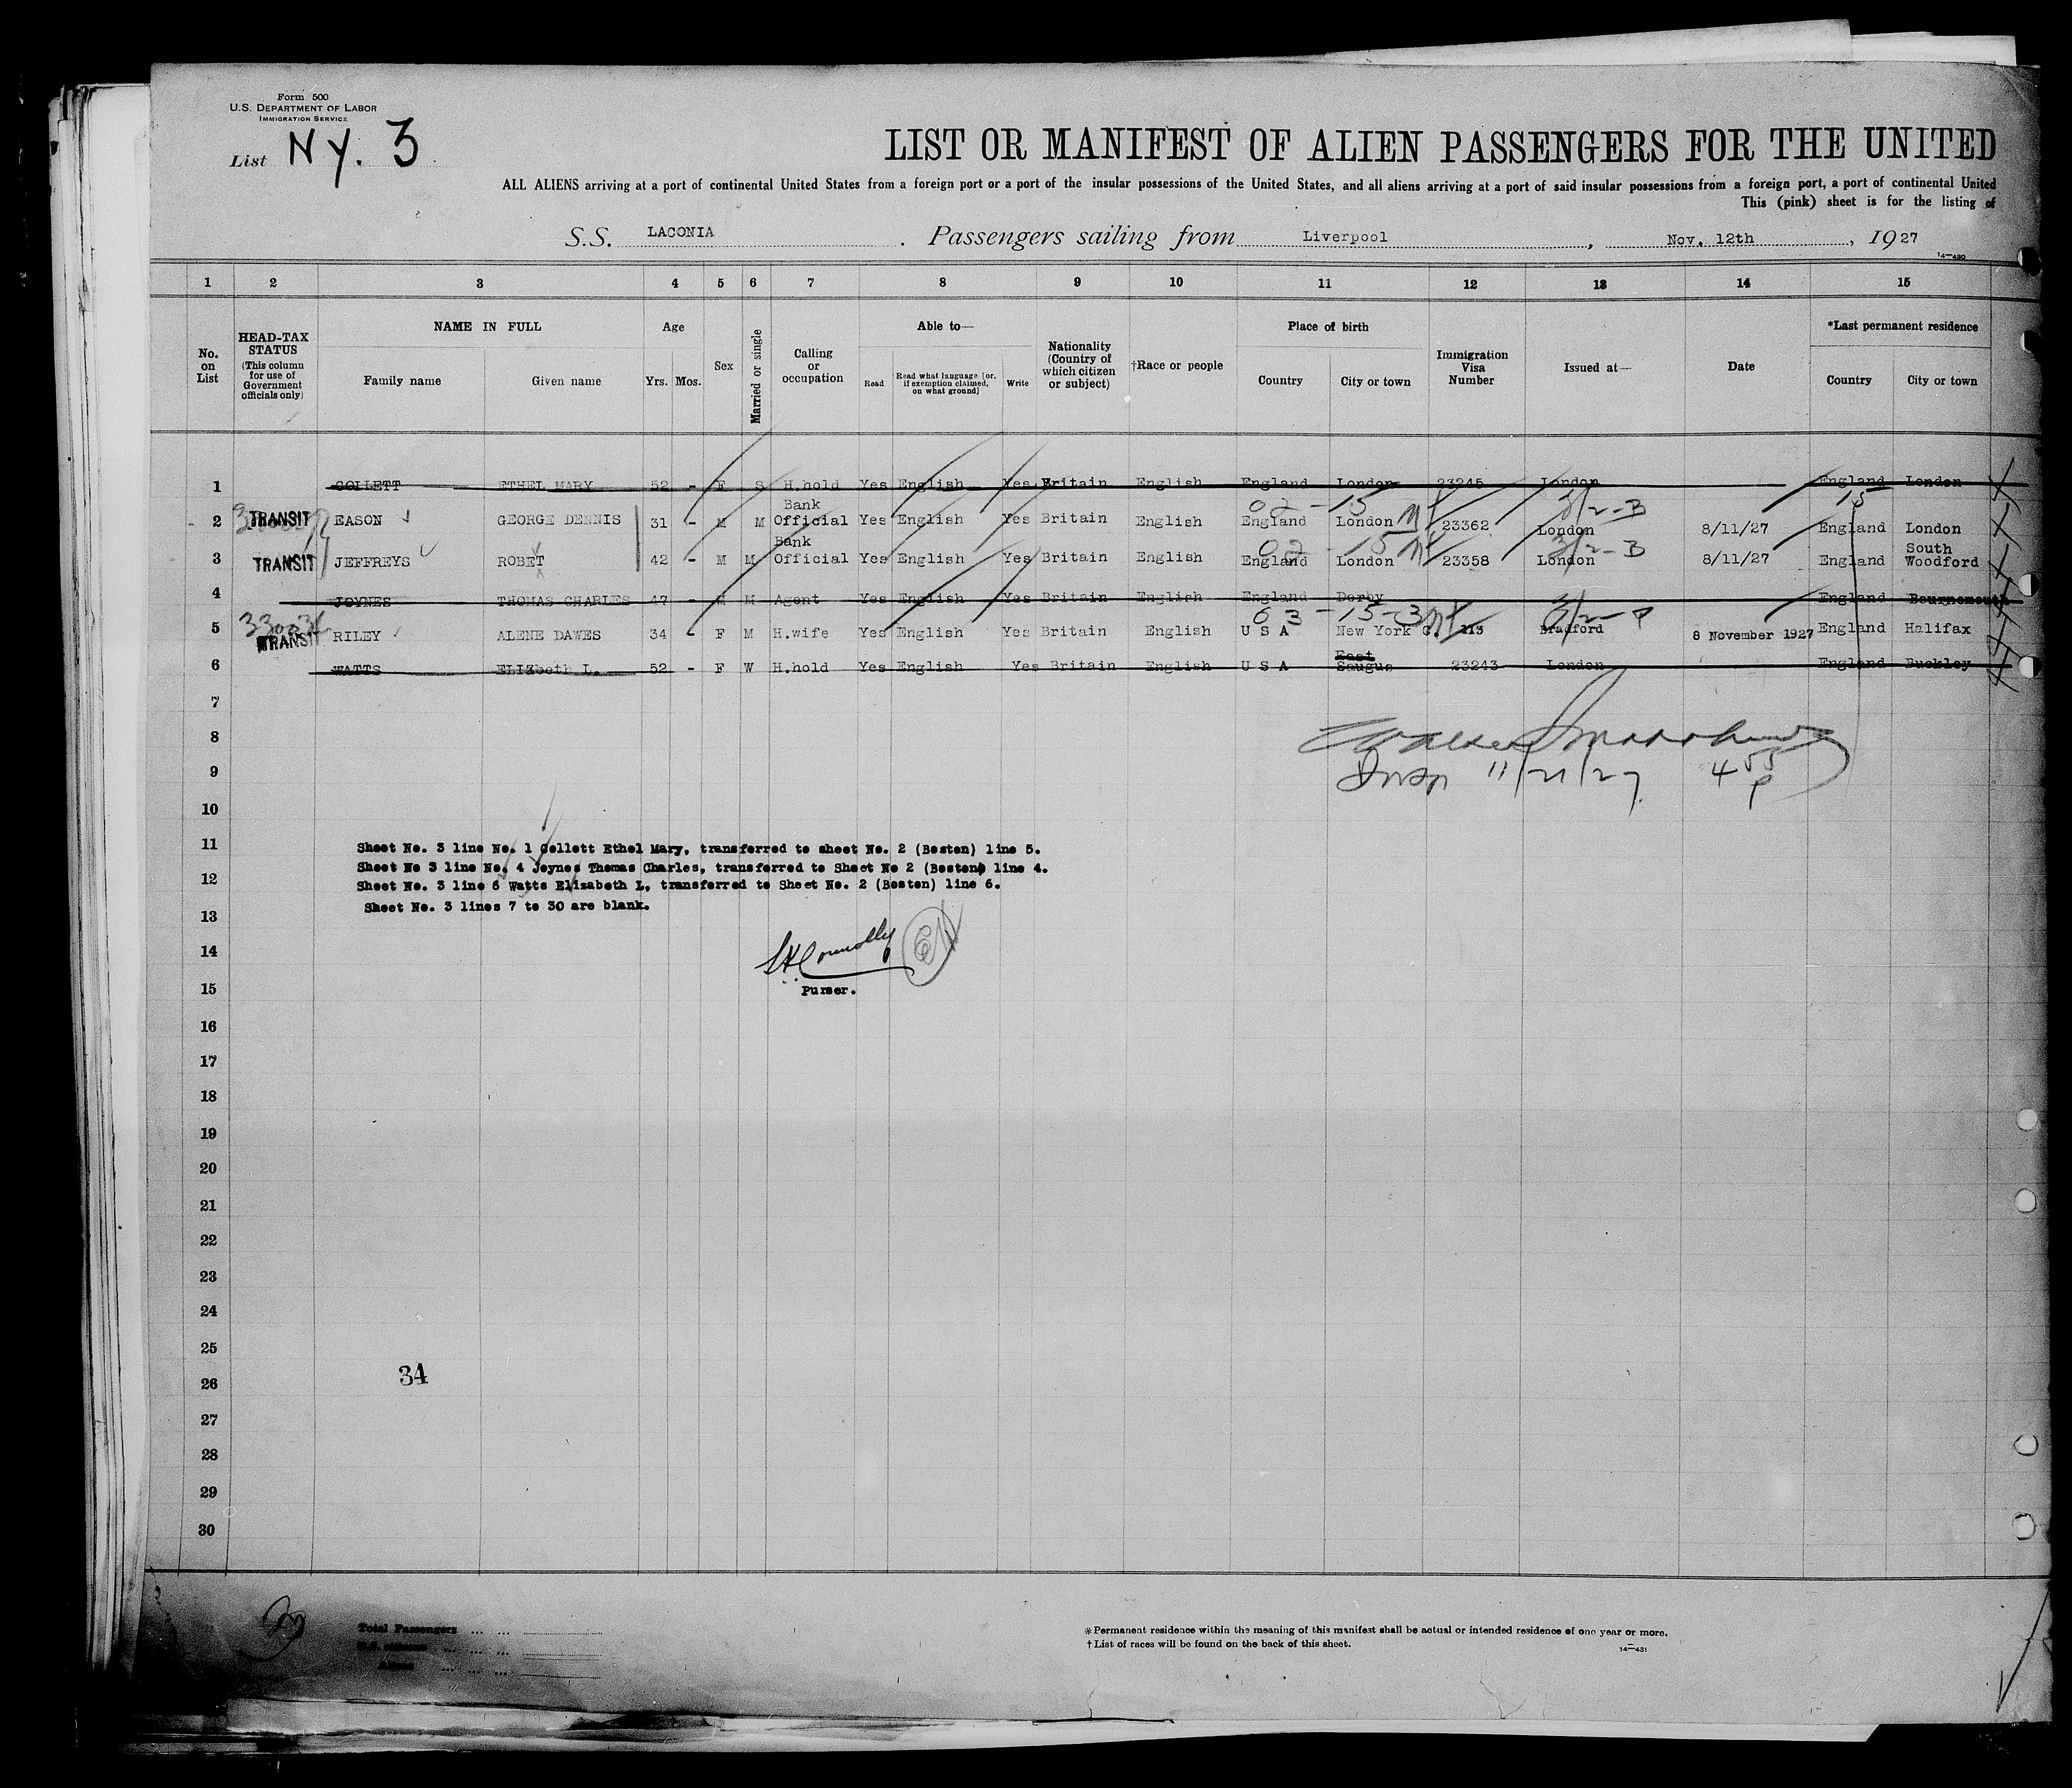 Form 500
U.S. DEPARTMENT OF LABOR
IMMIGRATION SERVICE
List NY. 3
LIST OR MANIFEST OF ALIEN PASSENGERS FOR THE UNITED
ALL ALIENS arriving at a port of continental United States from a foreign port or a port of the insular possessions of the United States, and all aliens arriving at a port of said insular possessions from a foreign port, a port of continental United
This (pink) sheet is for the listing of
S.S. LACONIA . Passengers sailing from Liverpool , Nov. 12th , 1927
14-430
1 2 3 4 5 6 7 8 9 10 11 12 13 14 15
No. on List
HEAD-TAX STATUS
(This column for use of Government officials only)
NAME IN FULL
Family name Given name
Age
Yrs. Mos.
Sex
Married or single
Calling or occupation
Able to—
Read Read what language [or, if exemption claimed, on what ground] Write
Nationality (Country of which citizen or subject)
†Race or people
Place of birth
Country City or town
Immigration Visa Number
Issued at—
Date
*Last permanent residence
Country City or town
1 COLLETT ETHEL MARY 52 - F S H.hold Yes English Yes Britain English England London 23245 London England London
02 - 15 3/2-B 15
2 TRANSIT EASON GEORGE DENNIS 31 - M M Bank Official Yes English Yes Britain English England London 23362 London 8/11/27 England London
02 - 15 3/2-B
3 TRANSIT JEFFREYS ROBET 42 - M M Bank Official Yes English Yes Britain English England London 23358 London 8/11/27 England South Woodford
4 JOYNES THOMAS CHARLES 47 - M M Agent Yes English Yes Britain English England Derby England Bournemouth
03 - 15 - 3
5 TRANSIT RILEY ALENE DAWES 34 - F M H.wife Yes English Yes Britain English U S A New York C. 113 Bradford 8 November 1927 England Halifax
6 WATTS ELIZabeth L. 52 - F W H.hold Yes English Yes Britain English U S A East Saugus 23243 London England Buckley
7
8
9 Insp 11/21/27 4 55 P
10
11 Sheet No. 3 line No. 1 Collett Ethel Mary, transferred to sheet No. 2 (Boston) line 5.
Sheet No 3 line No. 4 Joynes Thomas Charles, transferred to Sheet No 2 (Boston) line 4.
12 Sheet No. 3 line 6 Watts Elizabeth L, transferred to Sheet No. 2 (Boston) line 6.
13 Sheet No. 3 lines 7 to 30 are blank.
14 Connolly
15 Purser.
16
17
18
19
20
21
22
23
24
25
26 34
27
28
29
30
Total Passengers ... ...
U.S. citizens ... ... ...
Aliens ... ... ...
*Permanent residence within the meaning of this manifest shall be actual or intended residence of one year or more.
†List of races will be found on the back of this sheet.
14-431